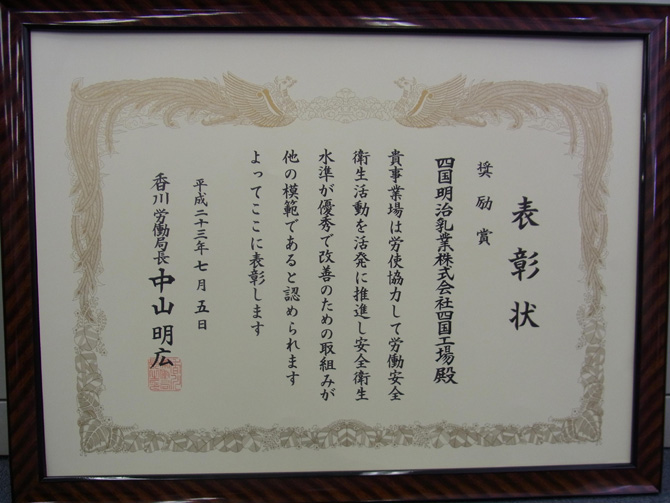 表彰状
奨励賞
四国明治乳業株式会社四国工場殿
貴事業場は労使協力して労働安全
衛生活動を活発に推進し安全衛生
水準が優秀で改善のための取組みが
他の模範であると認められます
よってここに表彰します
平成二十三年七月五日
香川労働局長 中山明広